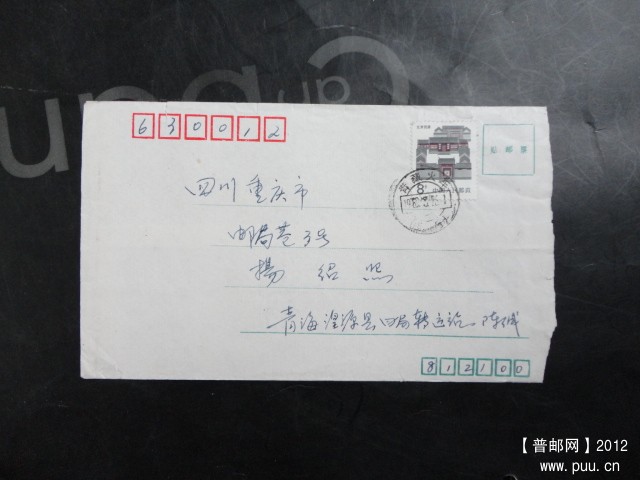 630012
贴邮票
四川重庆市
邮局巷3号
楊绍熙
青海湟源县邮局转运站 陈城
812100
【普邮网】2012
www.puu.cn